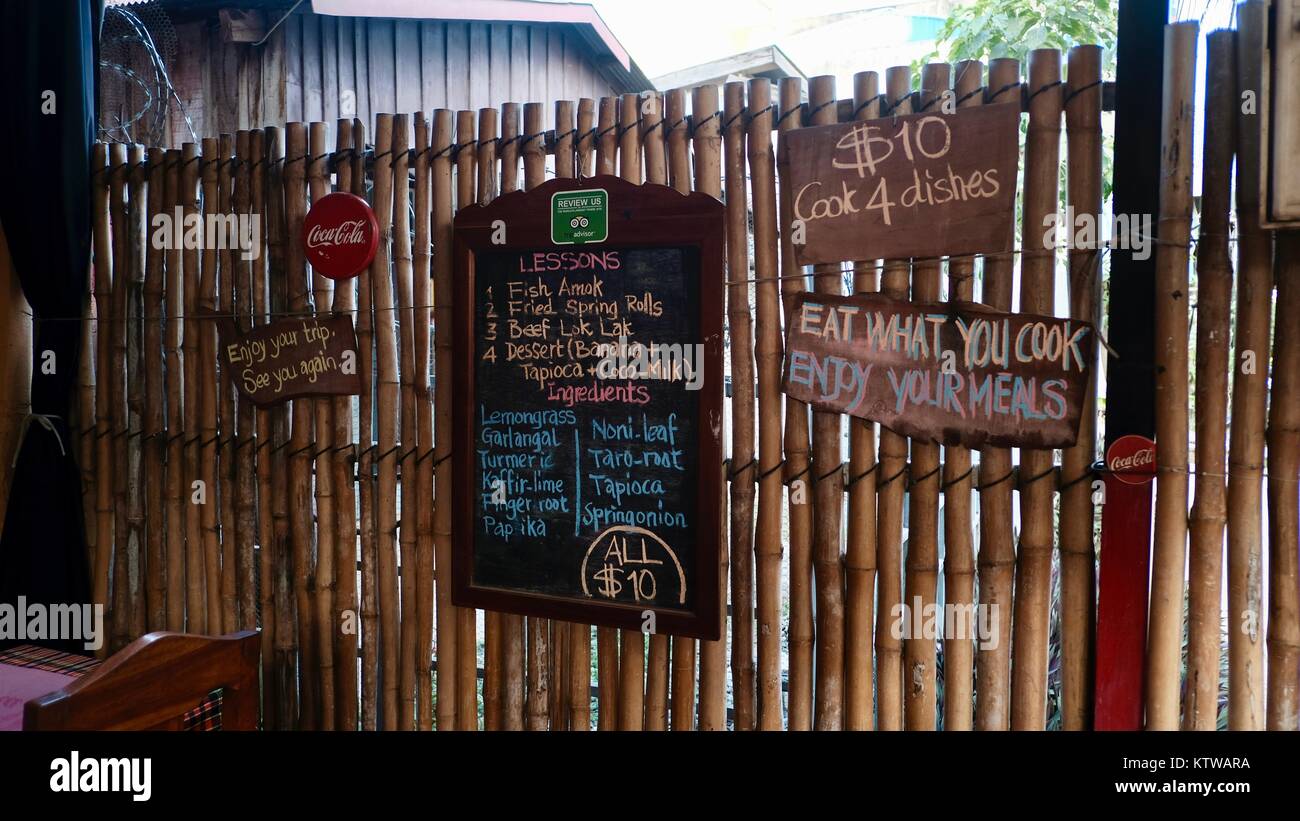 $10
Cook 4 dishes
REVIEW US
tripadvisor
Coca-Cola
LESSONS
1 Fish Amok
2 Fried Spring Rolls
3 Beef Lok Lak
4 Dessert (Banana +
Tapioca + Coco-Milk)
Ingredients
Lemongrass
Garlangal
Turmeric
Kaffir-lime
Finger root
Paprika
Noni-leaf
Taro-root
Tapioca
Springonion
ALL
$10
Enjoy your trip,
See you again
EAT WHAT YOU COOK
ENJOY YOUR MEALS
Coca-Cola
a
alamy
a
alamy
www.alamy.com
Image ID: KTWARA